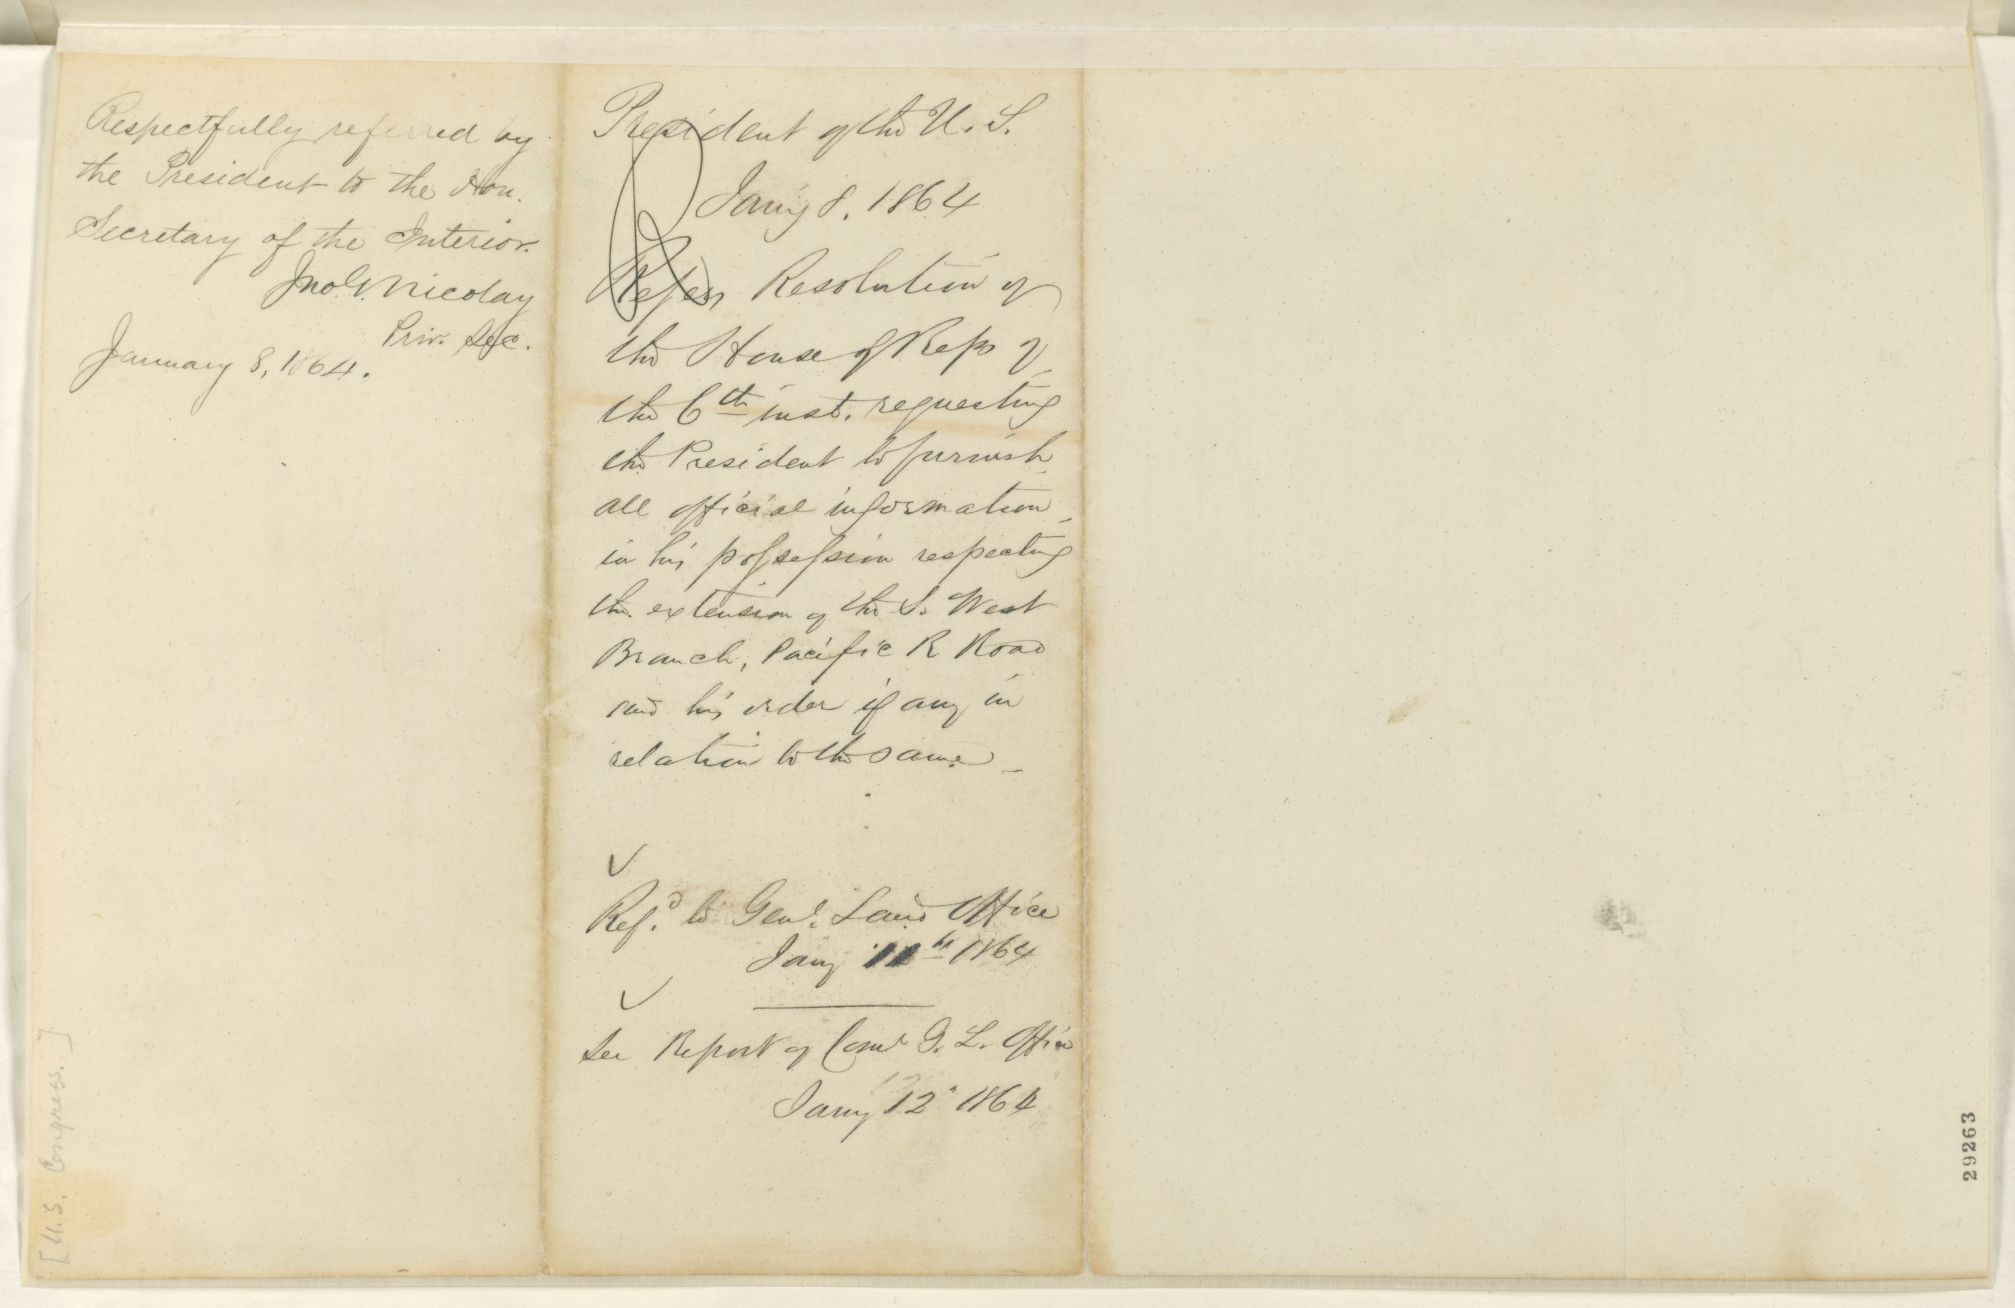 Respectfully referred by
the President to the Hon.
Secretary of the Interior.
Jno. G. Nicolay
Priv. Sec.
January 8, 1864.
President of the U. S.
Jany 8. 1864
Refers Resolution of
the House of Reps of
the 6th inst. requesting
the President to furnish
all official information
in his possession respecting
the extension of the S. West
Branch, Pacific R Road
and his order if any in
relation to the same
✓
Refd to Genl. Land Office
Jany 11th 1864
✓
See Report of Comr G. L. Office
Jany 12" 1864
[U.S. Congress.]
29263